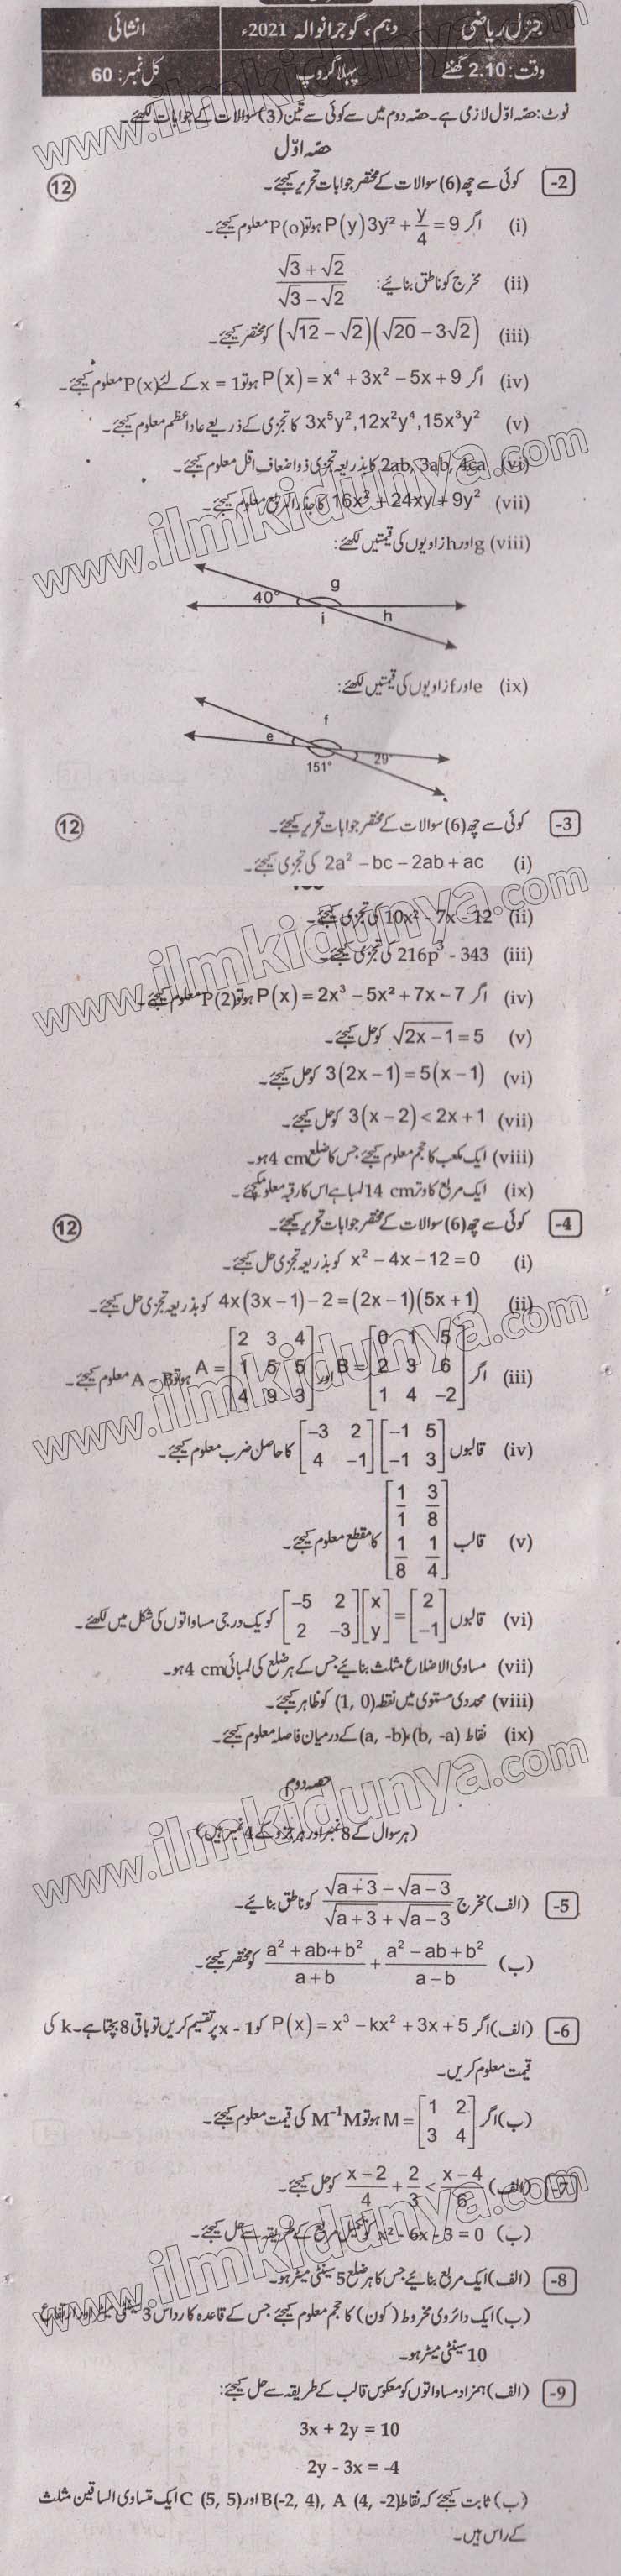 جنرل ریاضی
دہم، گوجرانوالہ 2021ء
انشائی
وقت: 2.10 گھنٹے
پہلا گروپ
کل نمبر: 60
نوٹ: حصہ اوّل لازمی ہے۔ حصہ دوم میں سے کوئی سے تین (3) سوالات کے جوابات لکھئے۔
حصہ اوّل
-2 کوئی سے چھ (6) سوالات کے مختصر جوابات تحریر کیجئے۔ 12
(i) اگر P(y) 3y² + y/4 = 9 ہو تو P(o) معلوم کیجئے۔
(ii) مخرج کو ناطق بنائیے: (√3 + √2)/(√3 − √2)
(iii) (√12 − √2)(√20 − 3√2) کو مختصر کیجئے۔
(iv) اگر P(x) = x⁴ + 3x² − 5x + 9 ہو تو x = 1 کے لئے P(x) معلوم کیجئے۔
(v) 3x⁵y², 12x²y⁴, 15x³y² کا تجزی کے ذریعے عاد اعظم معلوم کیجئے۔
(vi) 2ab, 3ab, 4ca کا بذریعہ تجزی ذو اضعاف اقل معلوم کیجئے۔
(vii) 16x² + 24xy + 9y² کا جذر المربع معلوم کیجئے۔
(viii) g اور h زاویوں کی قیمتیں لکھئے:
40° g i h
(ix) e اور f زاویوں کی قیمتیں لکھئے:
f e 29° 151°
-3 کوئی سے چھ (6) سوالات کے مختصر جوابات تحریر کیجئے۔ 12
(i) 2a² − bc − 2ab + ac کی تجزی کیجئے۔
(ii) 10x² - 7x - 12 کی تجزی کیجئے۔
(iii) 216p³ - 343 کی تجزی کیجئے۔
(iv) اگر P(x) = 2x³ − 5x² + 7x − 7 ہو تو P(2) معلوم کیجئے۔
(v) √(2x − 1) = 5 کو حل کیجئے۔
(vi) 3(2x − 1) = 5(x − 1) کو حل کیجئے۔
(vii) 3(x − 2) < 2x + 1 کو حل کیجئے۔
(viii) ایک مکعب کا حجم معلوم کیجئے جس کا ضلع 4 cm ہو۔
(ix) ایک مربع کا وتر 14 cm لمبا ہے اس کا رقبہ معلوم کیجئے۔
-4 کوئی سے چھ (6) سوالات کے مختصر جوابات تحریر کیجئے۔ 12
(i) x² − 4x − 12 = 0 کو بذریعہ تجزی حل کیجئے۔
(ii) 4x(3x − 1) − 2 = (2x − 1)(5x + 1) کو بذریعہ تجزی حل کیجئے۔
(iii) اگر B = [0 1 5; 2 3 6; 1 4 −2] اور A = [2 3 4; 1 5 5; 4 9 3] ہو تو A - B معلوم کیجئے۔
(iv) قالبوں [−3 2; 4 −1][−1 5; −1 3] کا حاصل ضرب معلوم کیجئے۔
(v) قالب [1/1 3/8; 1/8 1/4] کا مقطع معلوم کیجئے۔
(vi) قالبوں [−5 2; 2 −3][x; y] = [2; −1] کو یک درجی مساواتوں کی شکل میں لکھئے۔
(vii) مساوی الاضلاع مثلث بنائیے جس کے ہر ضلع کی لمبائی 4 cm ہو۔
(viii) محددی مستوی میں نقطہ (1, 0) کو ظاہر کیجئے۔
(ix) نقاط (a, -b)، (b, -a) کے درمیان فاصلہ معلوم کیجئے۔
حصہ دوم
(ہر سوال کے 8 نمبر اور ہر جزو کے 4 نمبر ہیں)
-5 (الف) مخرج (√(a+3) − √(a−3))/(√(a+3) + √(a−3)) کو ناطق بنائیے۔
(ب) (a² + ab + b²)/(a + b) + (a² − ab + b²)/(a − b) کو مختصر کیجئے۔
-6 (الف) اگر P(x) = x³ − kx² + 3x + 5 کو x - 1 پر تقسیم کریں تو باقی 8 بچتا ہے۔ k کی
قیمت معلوم کریں۔
(ب) اگر M = [1 2; 3 4] ہو تو M⁻¹M کی قیمت معلوم کیجئے۔
-7 (الف) (x − 2)/4 + 2/3 < (x − 4)/6 کو حل کیجئے۔
(ب) x² - 6x - 3 = 0 کو تکمیل مربع کے طریقہ سے حل کیجئے۔
-8 (الف) ایک مربع بنائیے جس کا ہر ضلع 5 سینٹی میٹر ہو۔
(ب) ایک دائروی مخروط (کون) کا حجم معلوم کیجئے جس کے قاعدہ کا رداس 3 سینٹی میٹر اور ارتفاع
10 سینٹی میٹر ہو۔
-9 (الف) ہمزاد مساواتوں کو معکوس قالب کے طریقہ سے حل کیجئے:
3x + 2y = 10
2y - 3x = -4
(ب) ثابت کیجئے کہ نقاط A (4, -2)، B(-2, 4) اور C (5, 5) ایک متساوی الساقین مثلث
کے راس ہیں۔
www.ilmkidunya.com
www.ilmkidunya.com
www.ilmkidunya.com
www.ilmkidunya.com
www.ilmkidunya.com
www.ilmkidunya.com